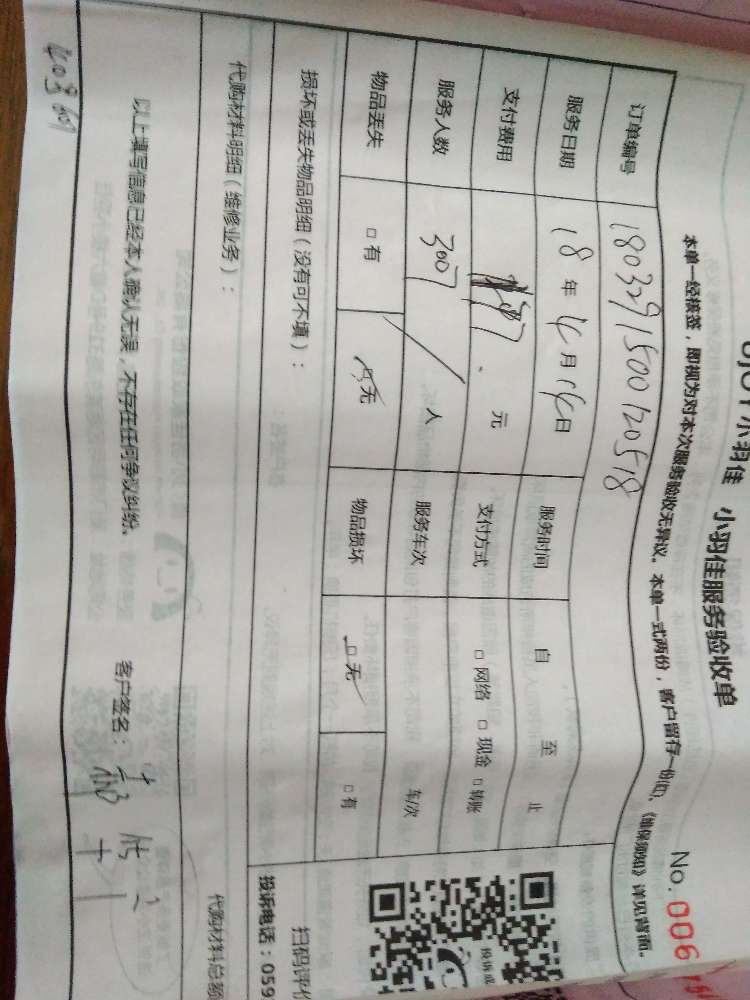 小羽佳 小羽佳服务验收单
No.006
本单一经接签，即视为对本次服务验收无异议。本单一式两份，客户留存一份(红)，《维保须知》详见背面。
订单编号 1803291500120518
服务日期 18年4月14日 服务时间 自 至 止
支付费用 元 支付方式 □网络 □现金 □转账
服务人数 人 服务车次 车/次
物品丢失 □有 □无 物品损坏 □无 □有
损坏或丢失物品明细（没有可不填）：
扫码评价
投诉电话：059
代购材料明细（维修业务）：
代购材料总额
以上填写信息已经本人确认无误，不存在任何争议纠纷。 客户签名：